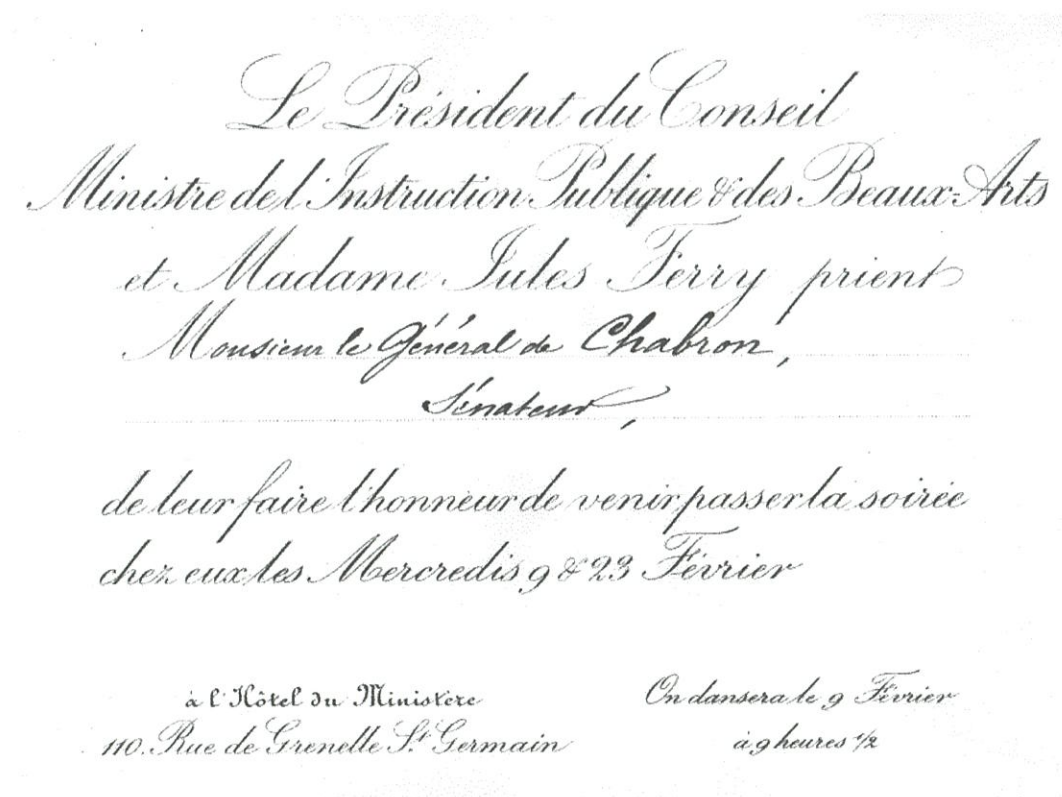 Le Président du Conseil
Ministre de l'Instruction Publique & des Beaux-Arts
et Madame Jules Ferry prient
Monsieur le Général de Chabron,
Sénateur,
de leur faire l'honneur de venir passer la soirée
chez eux les Mercredis 9 & 23 Février
à l'Hôtel du Ministère
110. Rue de Grenelle St Germain
On dansera le 9 Février
à 9 heures 1/2